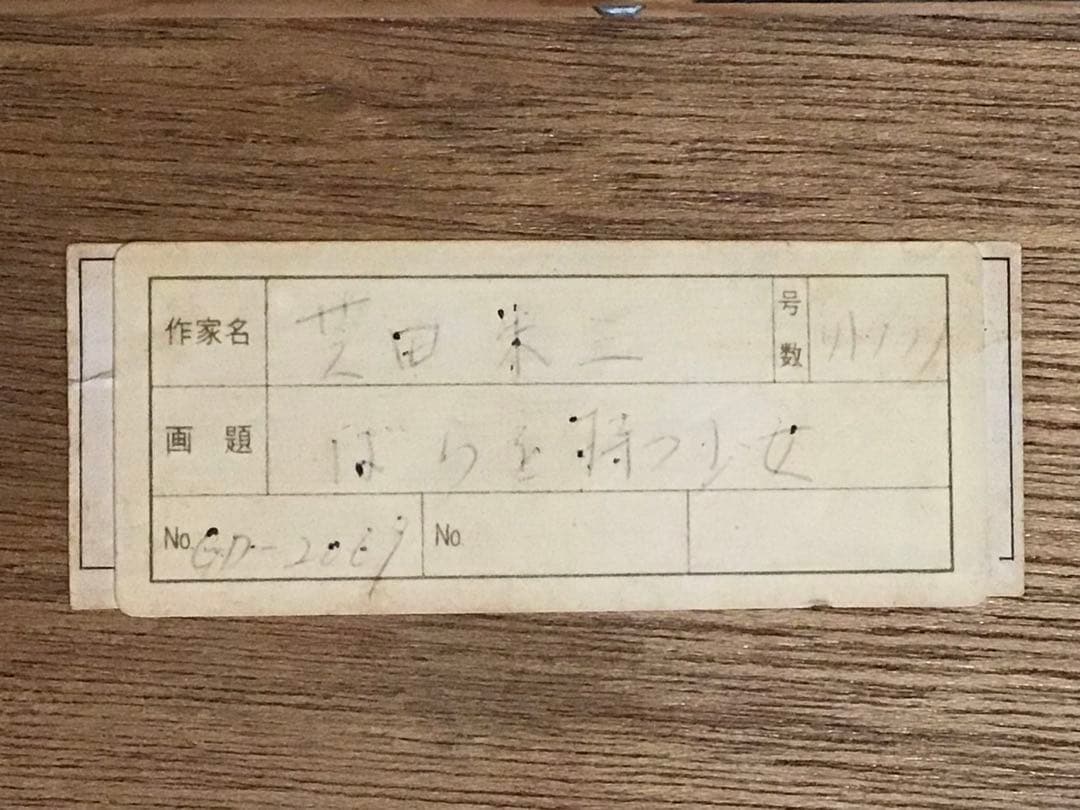 作家名 芝田米三 号数
画題 ばらを持つ少女
No. GD-2069 No.